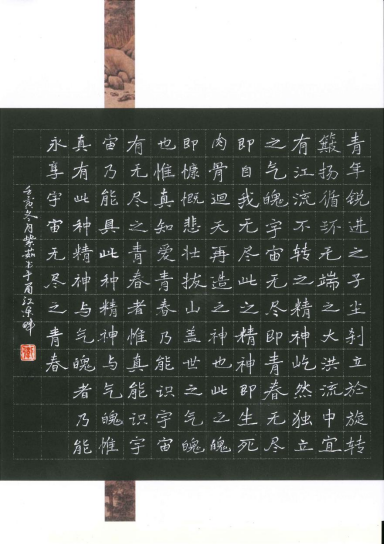 青年锐进之子尘刹立於旋转
簸扬循环无端之大洪流中宜
有江流不转之精神屹然独立
之气魄宇宙无尽即青春无尽
即自我无尽此之精神即生死
肉骨迴天再造之神也此之魄
即慷慨悲壮拔山盖世之气魄
也惟真知爱青春乃能识宇宙
有无尽之青春者惟真能识宇
宙乃能具此种精神与气魄惟
真有此种精神与气魄者乃能
永享宇宙无尽之青春
冬月紫茹上于酉江